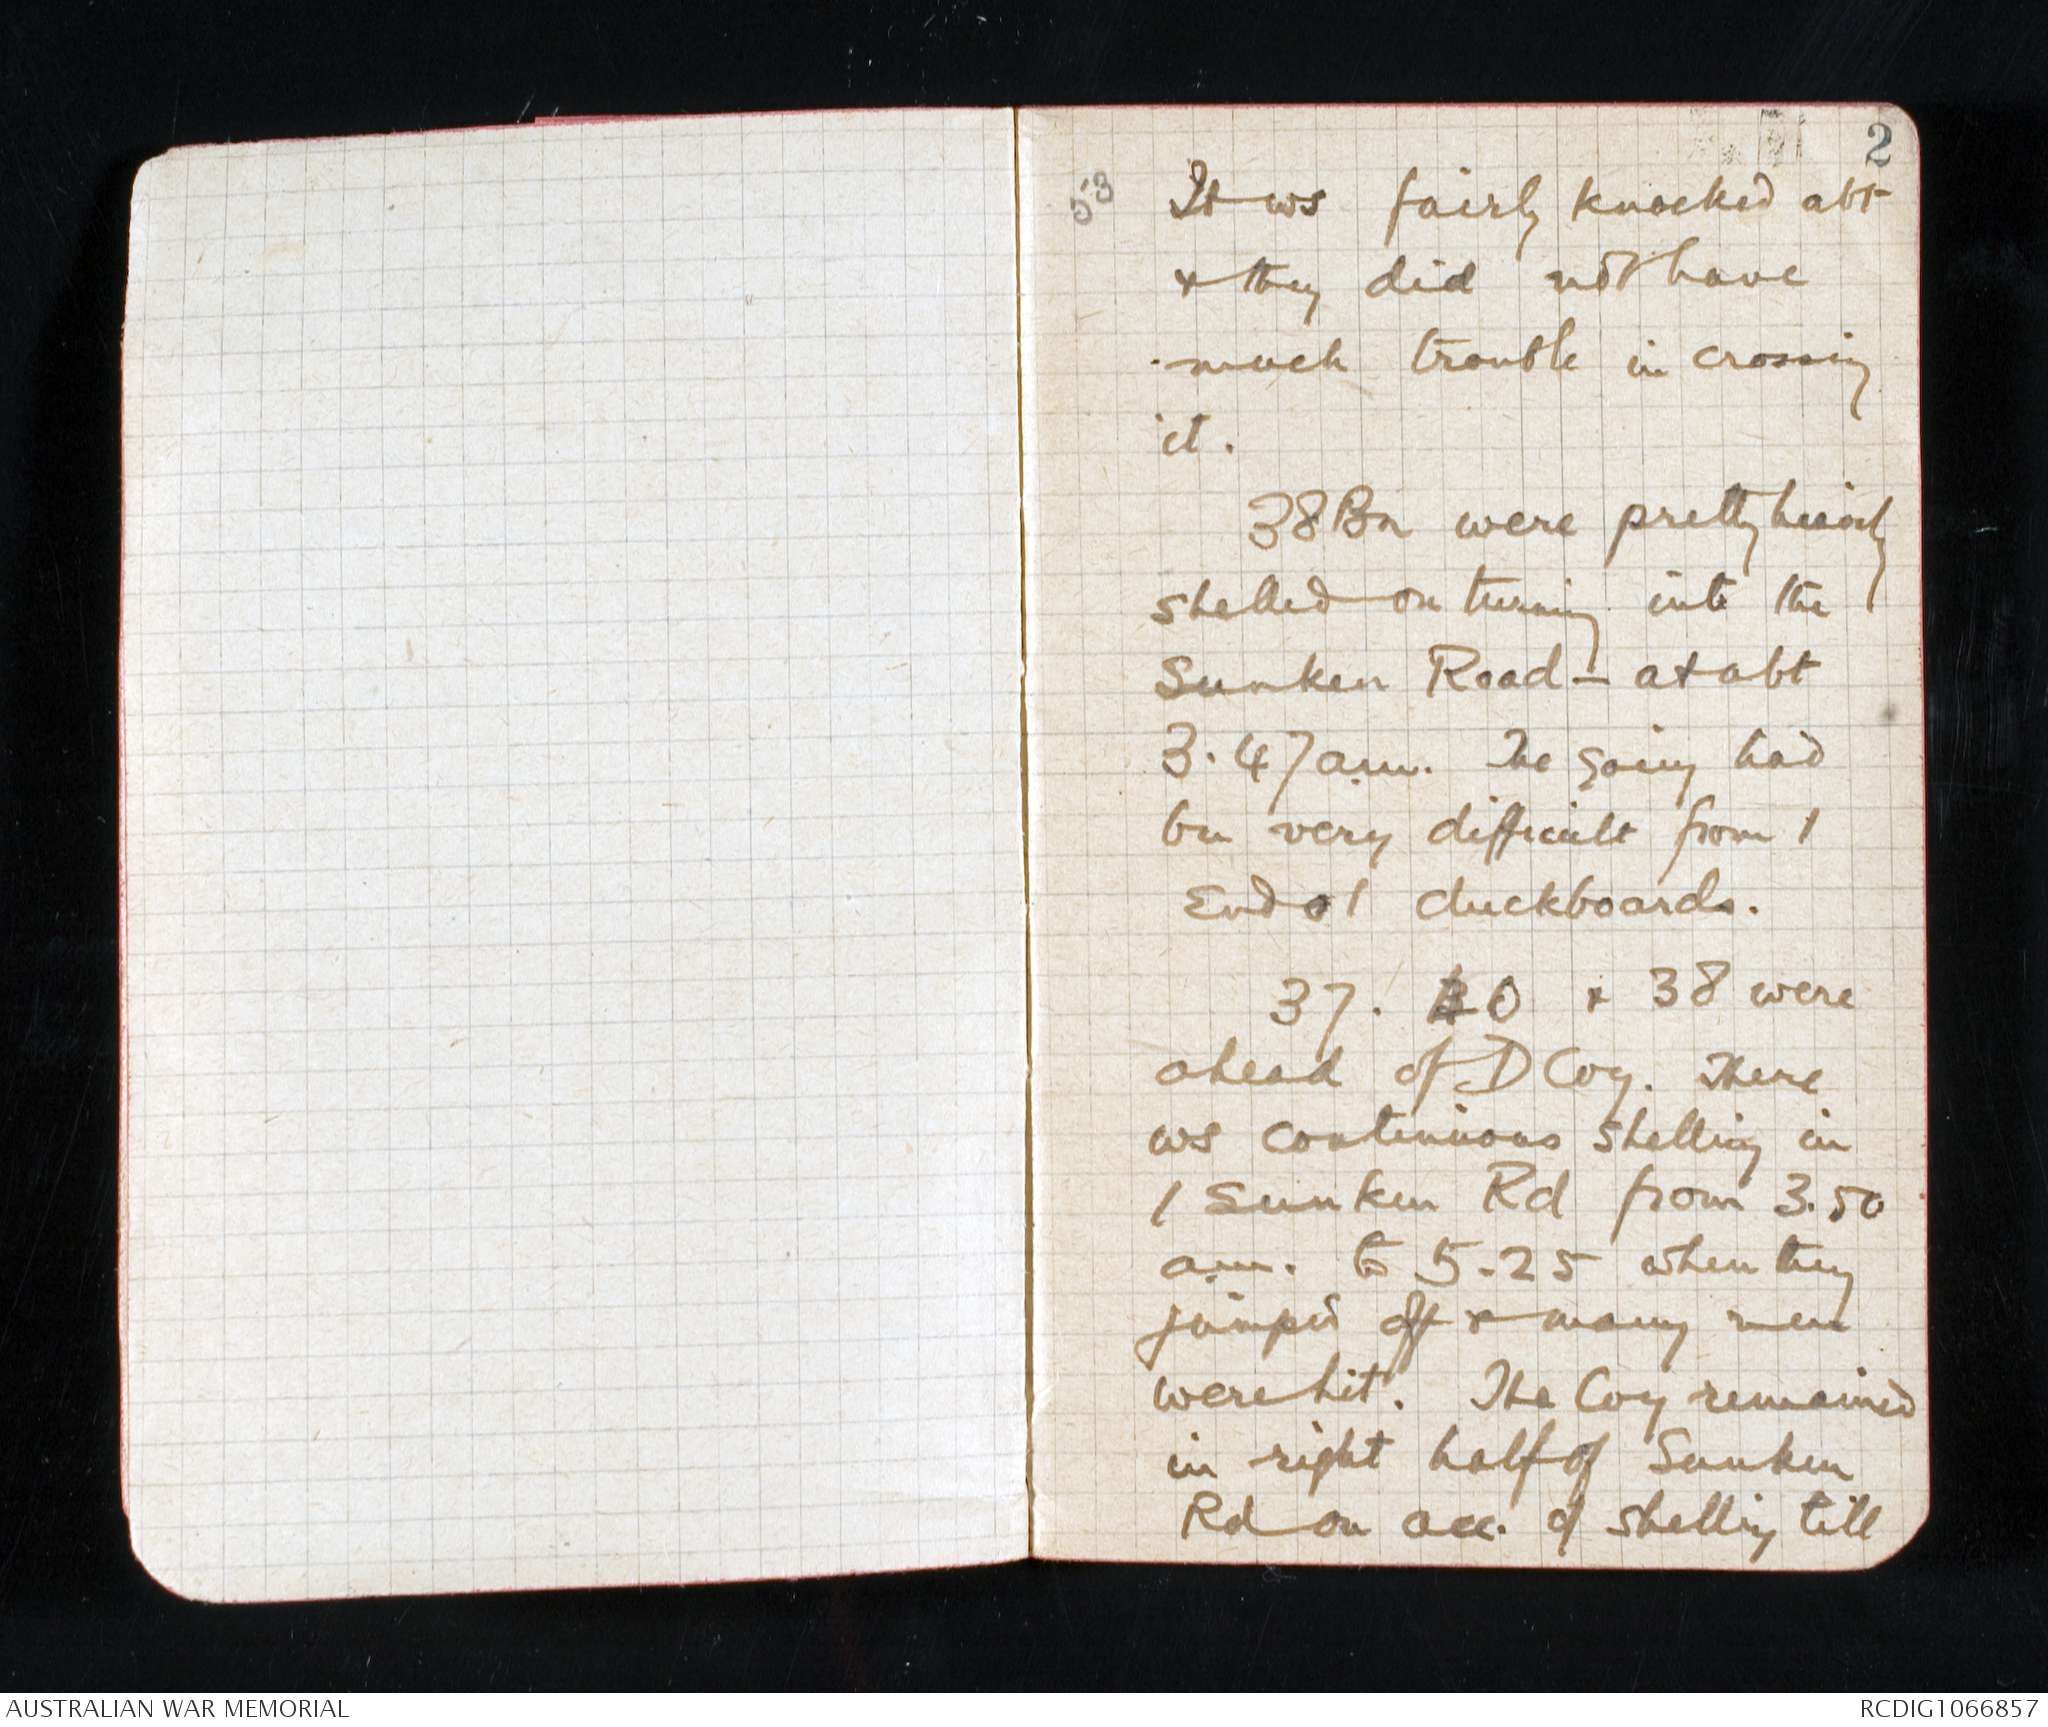 2
53
It ws fairly knocked abt
& they did not have
much trouble in crossing
it.
38 Bn were pretty heavily
shelled on turning into the
Sunken Road - at abt
3.47 a.m. The going had
bn very difficult from /
End o / duckboards.
37. 40 & 38 were
ahead of D Coy. There
ws continuous shelling in
/ Sunken Rd from 3.50
a.m. to 5.25 when they
jumped off & many men
were hit. The Coy remained
in right half of Sunken
Rd on acc. of shelling till
AUSTRALIAN WAR MEMORIAL
RCDIG1066857